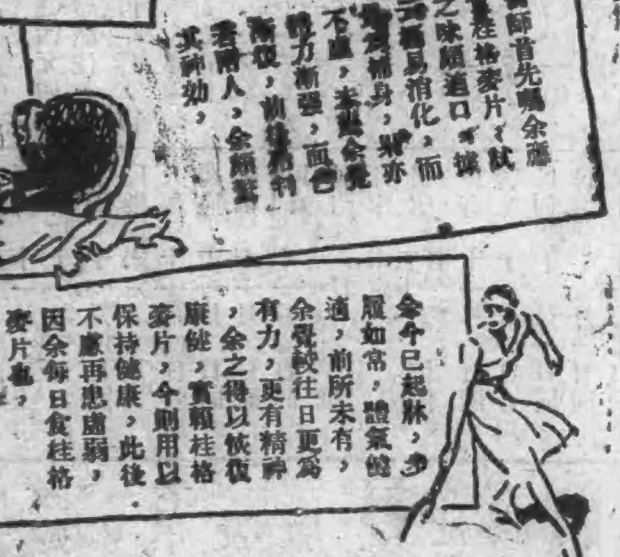 醫師首先囑余應
桂格麥片，試
之味頗適口，據
易消化，而
補身，眾亦
不虛，未幾余覺
力漸强，面色
漸
若兩人，余頗驚
其神効，
余今已起牀，步
履如常，體氣健
適，前所未有，
余覺較往日更爲
有力，更有精神
，余之得以恢復
康健，實賴桂格
麥片，今則用以
保持健康，此後
不慮再患虛弱，
因余每日食桂格
麥片也，